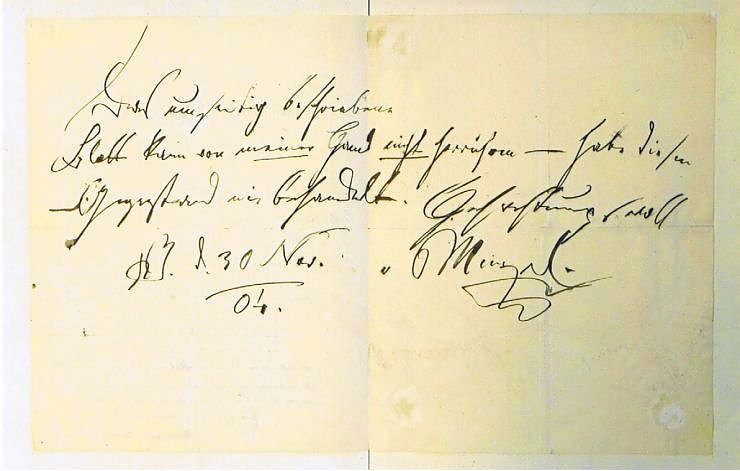 Das umseitig beschriebene
Blatt kann von meiner Hand nicht herrühren — habe diesen
Gegenstand nie behandelt. Hochachtungsvoll
B. d. 30 Nov. Menzel.
04.